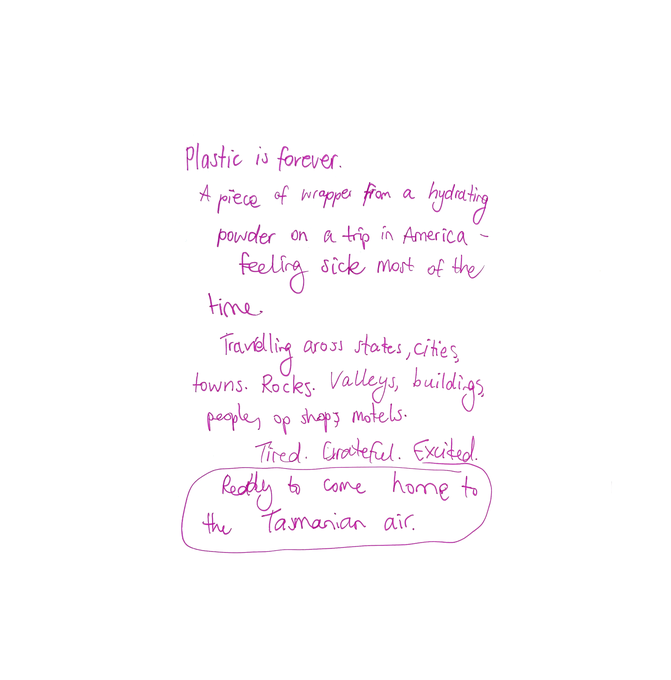 Plastic is forever.
A piece of wrapper from a hydrating
powder on a trip in America -
feeling sick most of the
time.
Travelling aross states, cities,
towns. Rocks. Valleys, buildings,
people, op shops, motels.
Tired. Grateful. Excited.
Ready to come home to
the Tasmanian air.